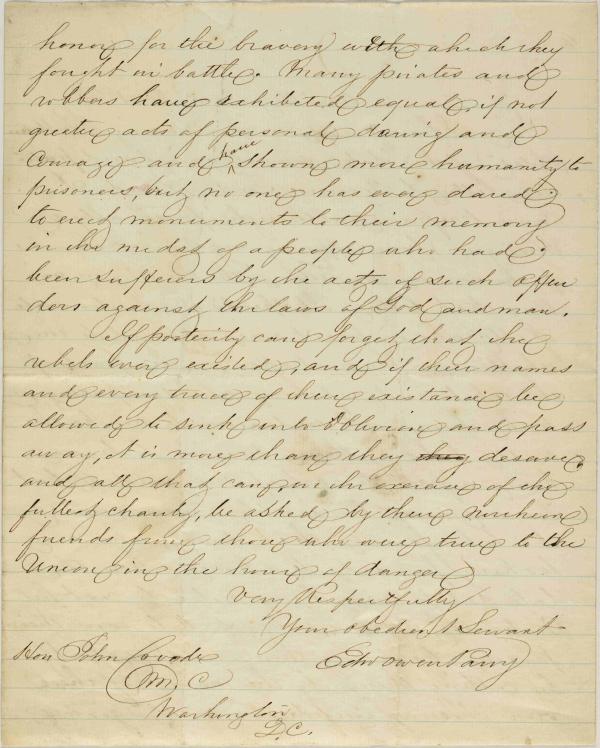 honor for the bravery with which they
fought in battle. Many pirates and
robbers have exhibited equal, if not
greater acts of personal daring and
courage and have shown more humanity to
prisoners, but no one has ever dared
to erect monuments to their memory
in the midst of a people who had
been sufferers by the acts of such offen
ders against the laws of God and man.
If posterity can forget that the
rebels ever existed, and if their names
and every trace of their existance be
allowed to sink into Oblivion and pass
away, it is more than they they deserve,
and all that can, in the exercise of the
fullest charity, be asked by their northern
friends from those who were true to the
Union in the hour of danger
Very Respectfully
Your obedient Servant
Edw Owen Parry
Hon John Covode
M. C
Washington
D.C.